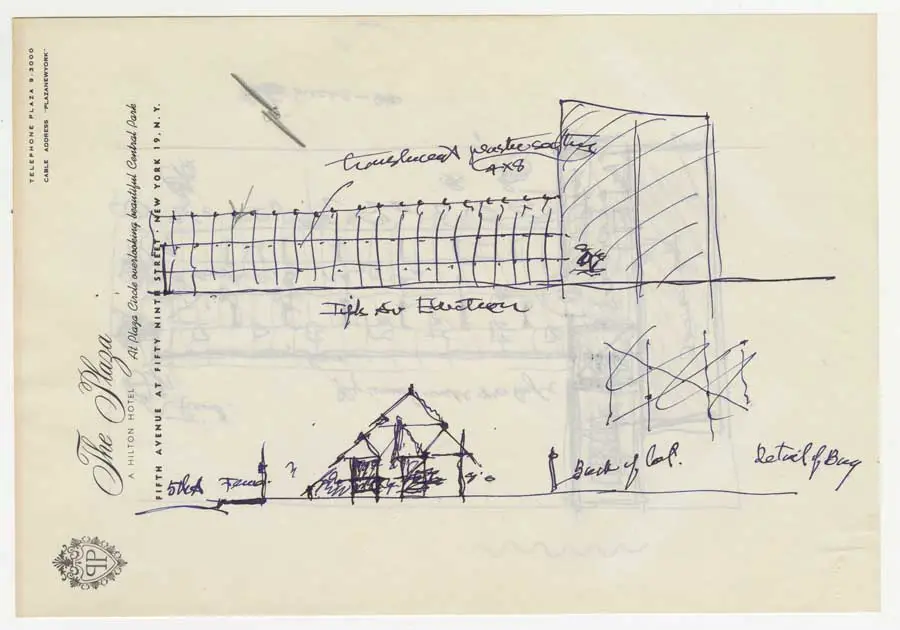 TELEPHONE PLAZA 9-3000
CABLE ADDRESS "PLAZANEWYORK"
The Plaza
A HILTON HOTEL
At Plaza Circle overlooking beautiful Central Park
FIFTH AVENUE AT FIFTY NINTH STREET · NEW YORK 19, N. Y.
PP
translucent
4x8
Av Elevation
5th A
Back of
Detail of Bay